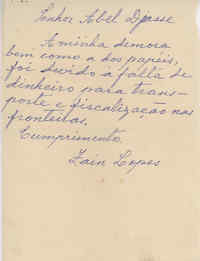 Senhor Abel Djassi
A minha demora
bem como a dos papéis,
foi devido à falta de
dinheiro para trans-
porte e fiscalização nas
fronteiras.
Cumprimento.
Zain Lopes